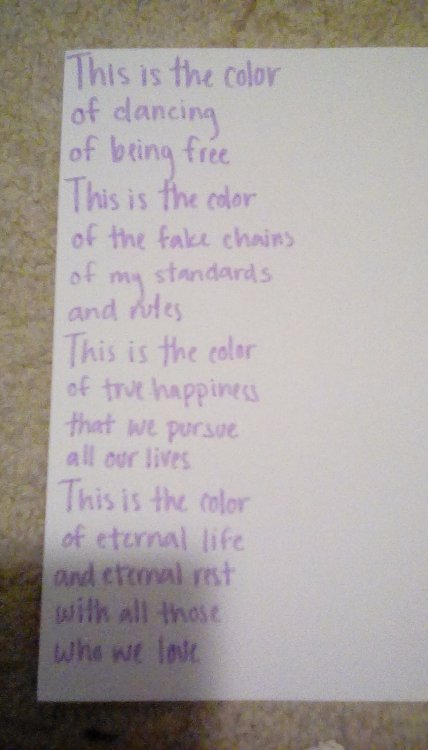 This is the color
of dancing
of being free
This is the color
of the fake chains
of my standards
and rules
This is the color
of true happiness
that we pursue
all our lives
This is the color
of eternal life
and eternal rest
with all those
who we love